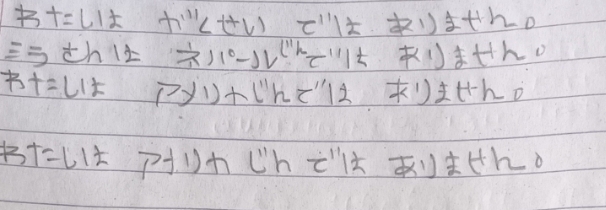 わたしは がくせい では ありません。
ミラさんは ネパールじんでは ありません。
わたしは アメリカじんでは ありません。
わたしは アメリカ じん では ありません。